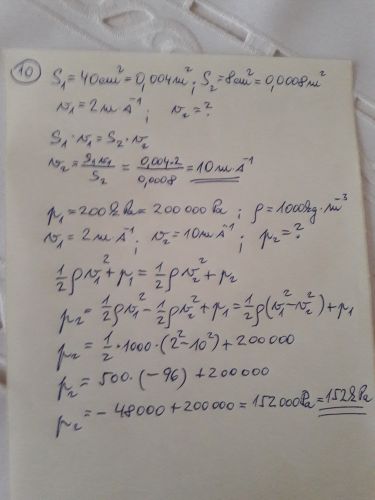 10
S₁ = 40cm² = 0,004m² ; S₂ = 8cm² = 0,0008m²
v₁ = 2m·s⁻¹ ; v₂ = ?
S₁·v₁ = S₂·v₂
v₂ = S₁v₁/S₂ = 0,004·2/0,0008 = 10m·s⁻¹
p₁ = 200kPa = 200 000 Pa ; ρ = 1000kg·m⁻³
v₁ = 2m·s⁻¹ ; v₂ = 10m·s⁻¹ ; p₂ = ?
1/2 ρv₁² + p₁ = 1/2 ρv₂² + p₂
p₂ = 1/2 ρv₁² - 1/2 ρv₂² + p₁ = 1/2 ρ(v₁² - v₂²) + p₁
p₂ = 1/2 · 1000 · (2² - 10²) + 200000
p₂ = 500 · (-96) + 200000
p₂ = - 48000 + 200000 = 152000Pa = 152kPa